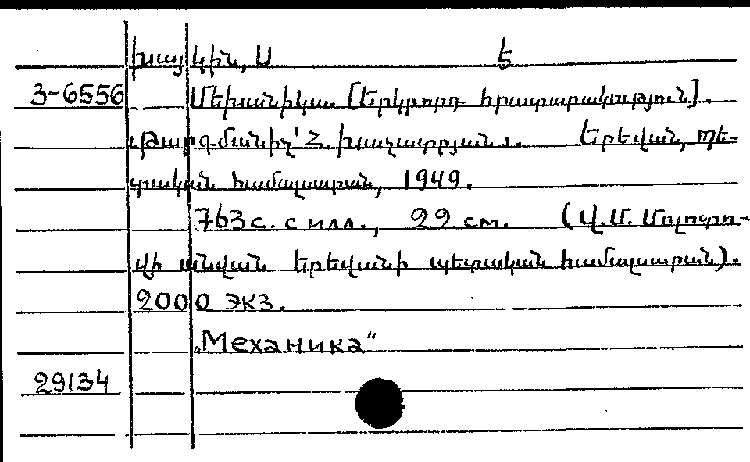 Խայկին, Ս Ե
3-6556 Մեխանիկա. [Երկրորդ հրատարակություն].
Թարգմանիչ՝ Հ. Խաչատրյան. Երևան, Պե-
տական համալսարան, 1949.
763 с. с илл., 22 см. (Վ. Մ. Մոլոտո-
վի անվան Երևանի պետական համալսարան).
2000 экз.
„Механика“
29134